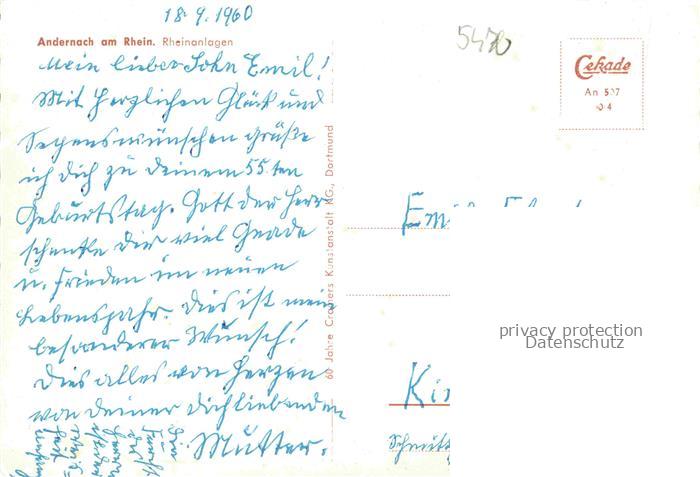 18.9.1960
Andernach am Rhein. Rheinanlagen
Mein lieber Sohn Emil!
Mit herzlichen Glück und
Segenswünschen grüße
ich dich zu deinem 55ten
Geburtstag. Gott der Herr
schenke dir viel Gnade
u. Frieden im neuen
Lebensjahr. Dies ist mein
besonderer Wunsch!
Dies alles von Herzen
von deiner dich liebenden
Mutter.
60 Jahre Cramers Kunstanstalt KG., Dortmund
5470
Cekade
An 527
04
Emil
Ki
privacy protection
Datenschutz